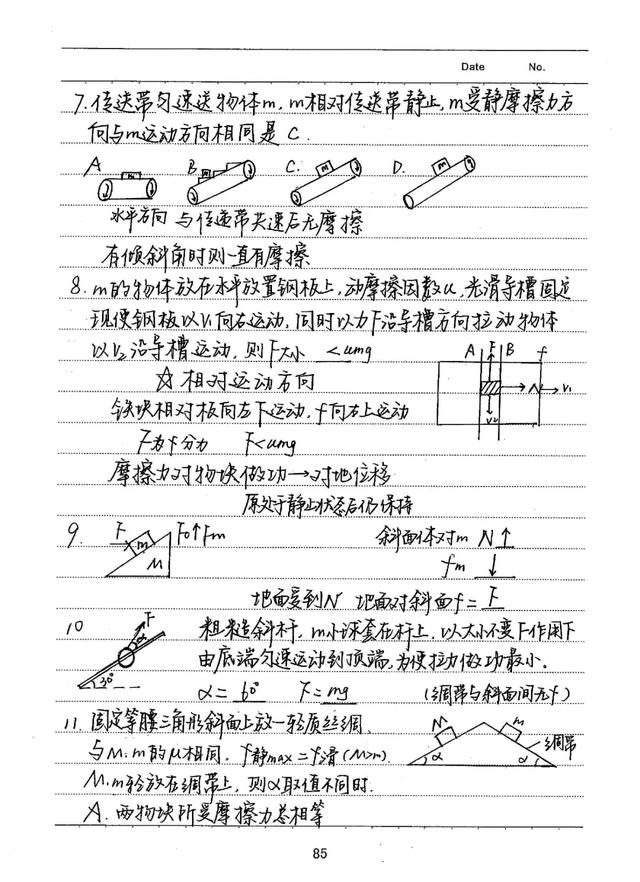 Date No.
7.传送带匀速送物体m,m相对传送带静止,m受静摩擦力方
向与m运动方向相同是 C.
A B. C. D.
m m m m
水平方向 与传送带共速后无摩擦
有倾斜角时则一直有摩擦
8.m的物体放在水平放置钢板上,动摩擦因数u,光滑导槽固定
现使钢板以V1向右运动,同时以力F沿导槽方向拉动物体
以V2沿导槽运动,则F大小 <umg
A F B f
☆ 相对运动方向
V1
V2
铁块相对板向左下运动,f向右上运动
F为f分力 F<umg
摩擦力对物块做功→对地位移
原处于静止状态后仍保持
9. F m M F0↑Fm 斜面体对m N ↑
fm ↓
地面受到N 地面对斜面f= F
10 F α 30° 粗糙斜杆,m小球套在杆上,以大小不变F作用下
由底端匀速运动到顶端,为使拉力做功最小.
α= 60° F= mg (绸带与斜面间无f)
11.固定等腰三角形斜面上放一轻质丝绸,
M m 绸带
与M.m的μ相同. f静max=f滑(M>m).
α α
M.m轻放在绸带上,则α取值不同时.
A.两物块所受摩擦力总相等
85